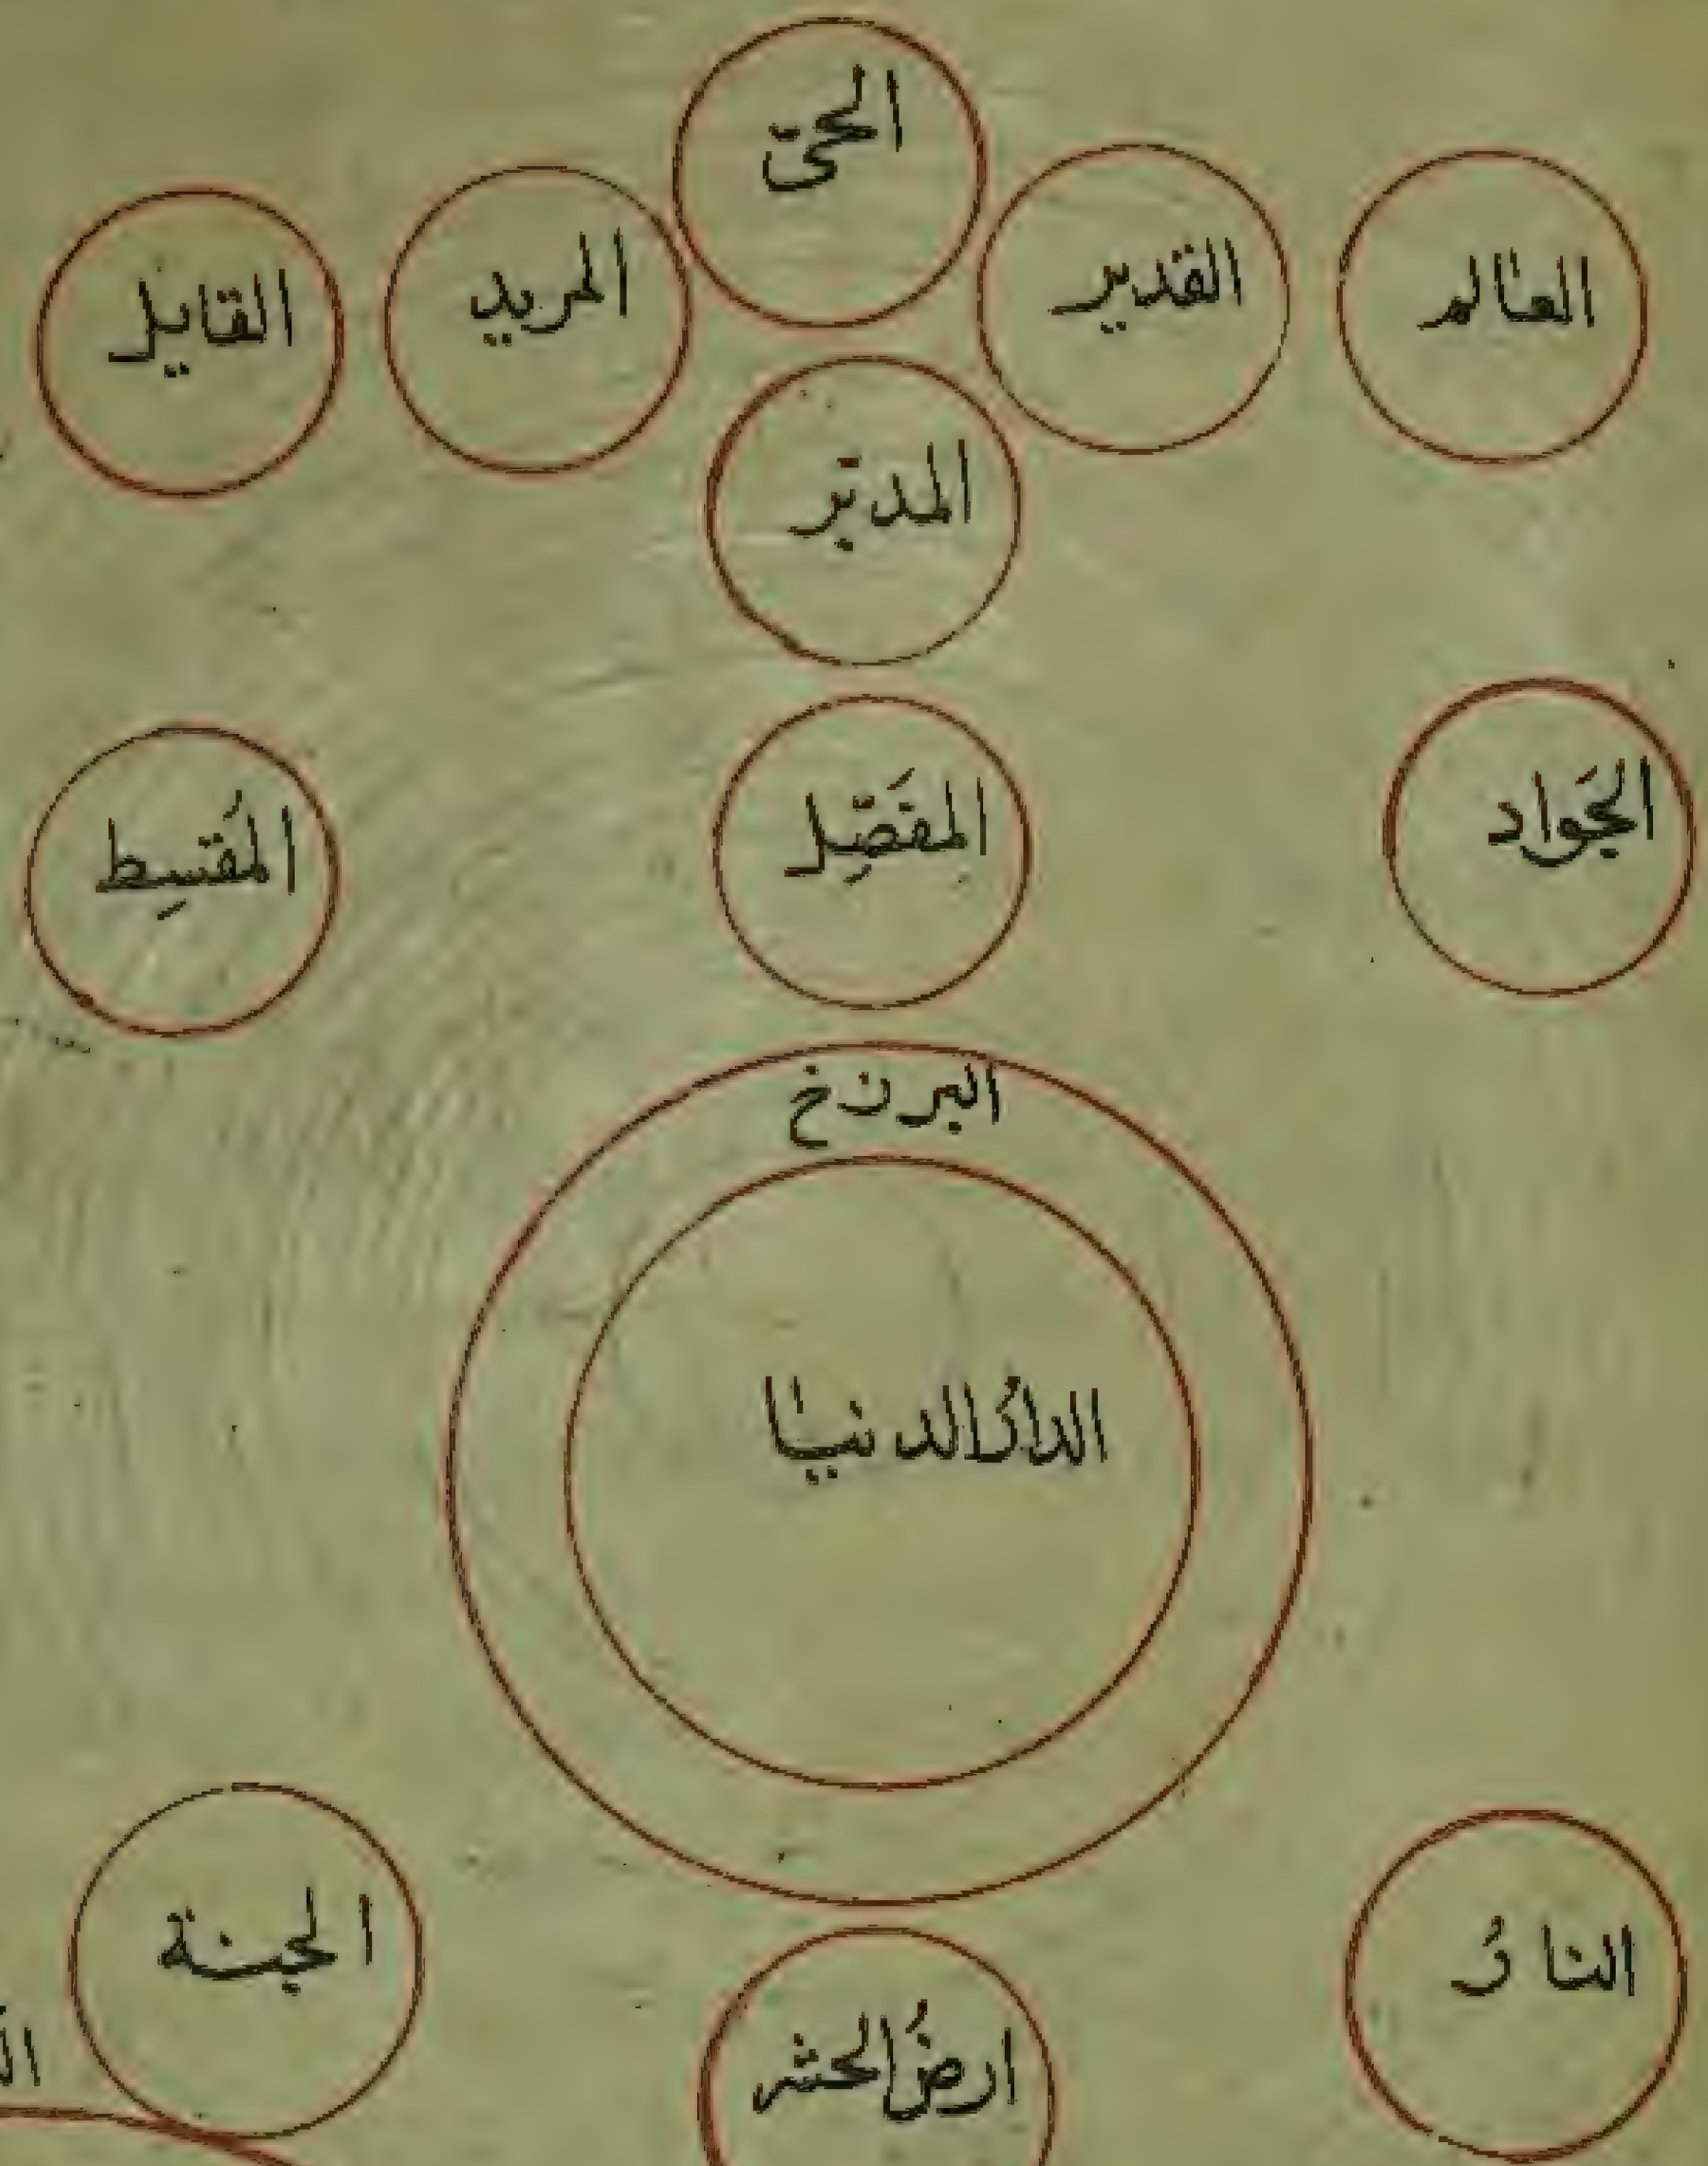 الحيّ
العالم القدير المريد القايل
المدبّر
الجَواد المفَصِّل المُقسِط
البرزخ
الدارُ الدنيا
النارُ الجنة
ارضُ الحشر